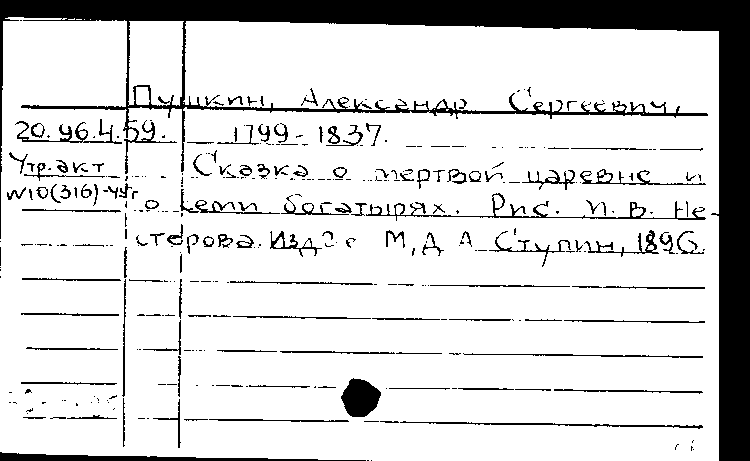 Пушкин, Александр Сергеевич,
20.96.4.59. 1799-1837.
Утр. акт Сказка о мертвой царевне и
N10(316)-49г о семи богатырях. Рис. М. В. Не-
стерова. Изд 2е М, Д А Ступин, 1896.